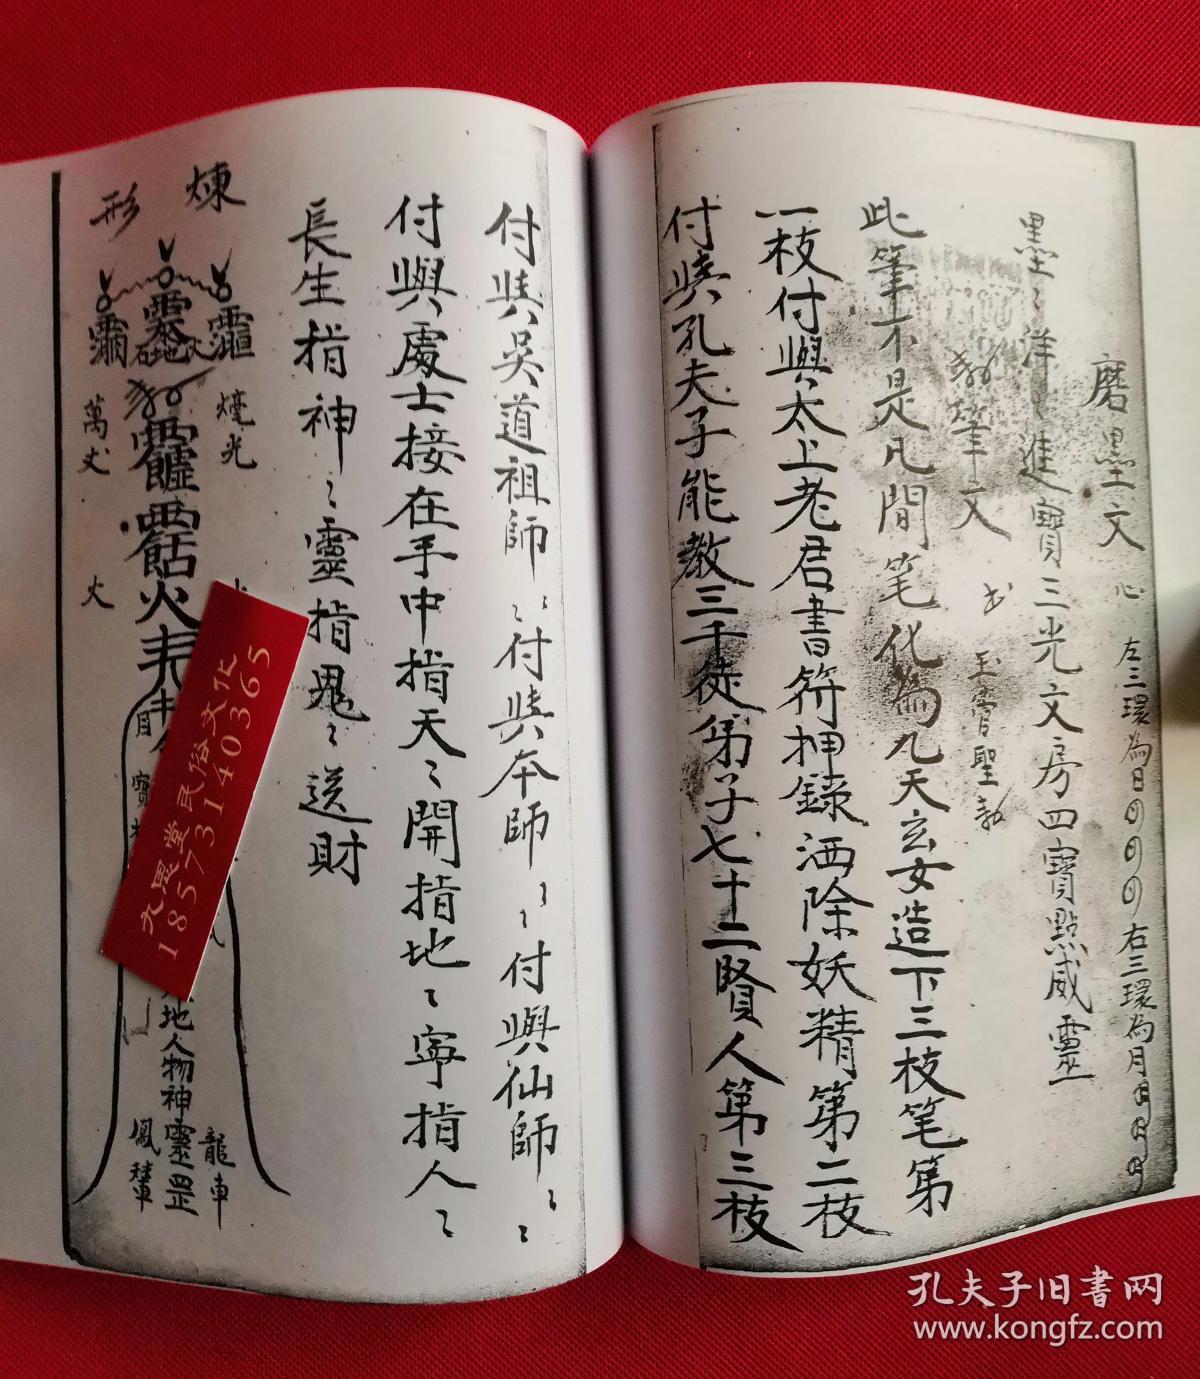 磨墨文 心 左三環為日 右三環為月
墨〻洋〻進寶三光文房四寶點威靈
勅筆文
玉宫聖勅
此筆不是凡間笔化為九天玄女造下三枝笔第
一枝付與太上老君書符押錄洒除妖精第二枝
付與孔夫子能教三千徒弟子七十二賢人第三枝
付與吴道祖師〻〻付與本師〻〻付與仙師〻〻
付與處士接在手中指天〻開指地〻寧指人〻
長生指神〻靈指鬼〻送財
煉形
燒光
萬丈
火
地人物神靈罡
龍車
鳳輦
大恩堂民俗文化
18573140365
孔夫子旧书网
www.kongfz.com